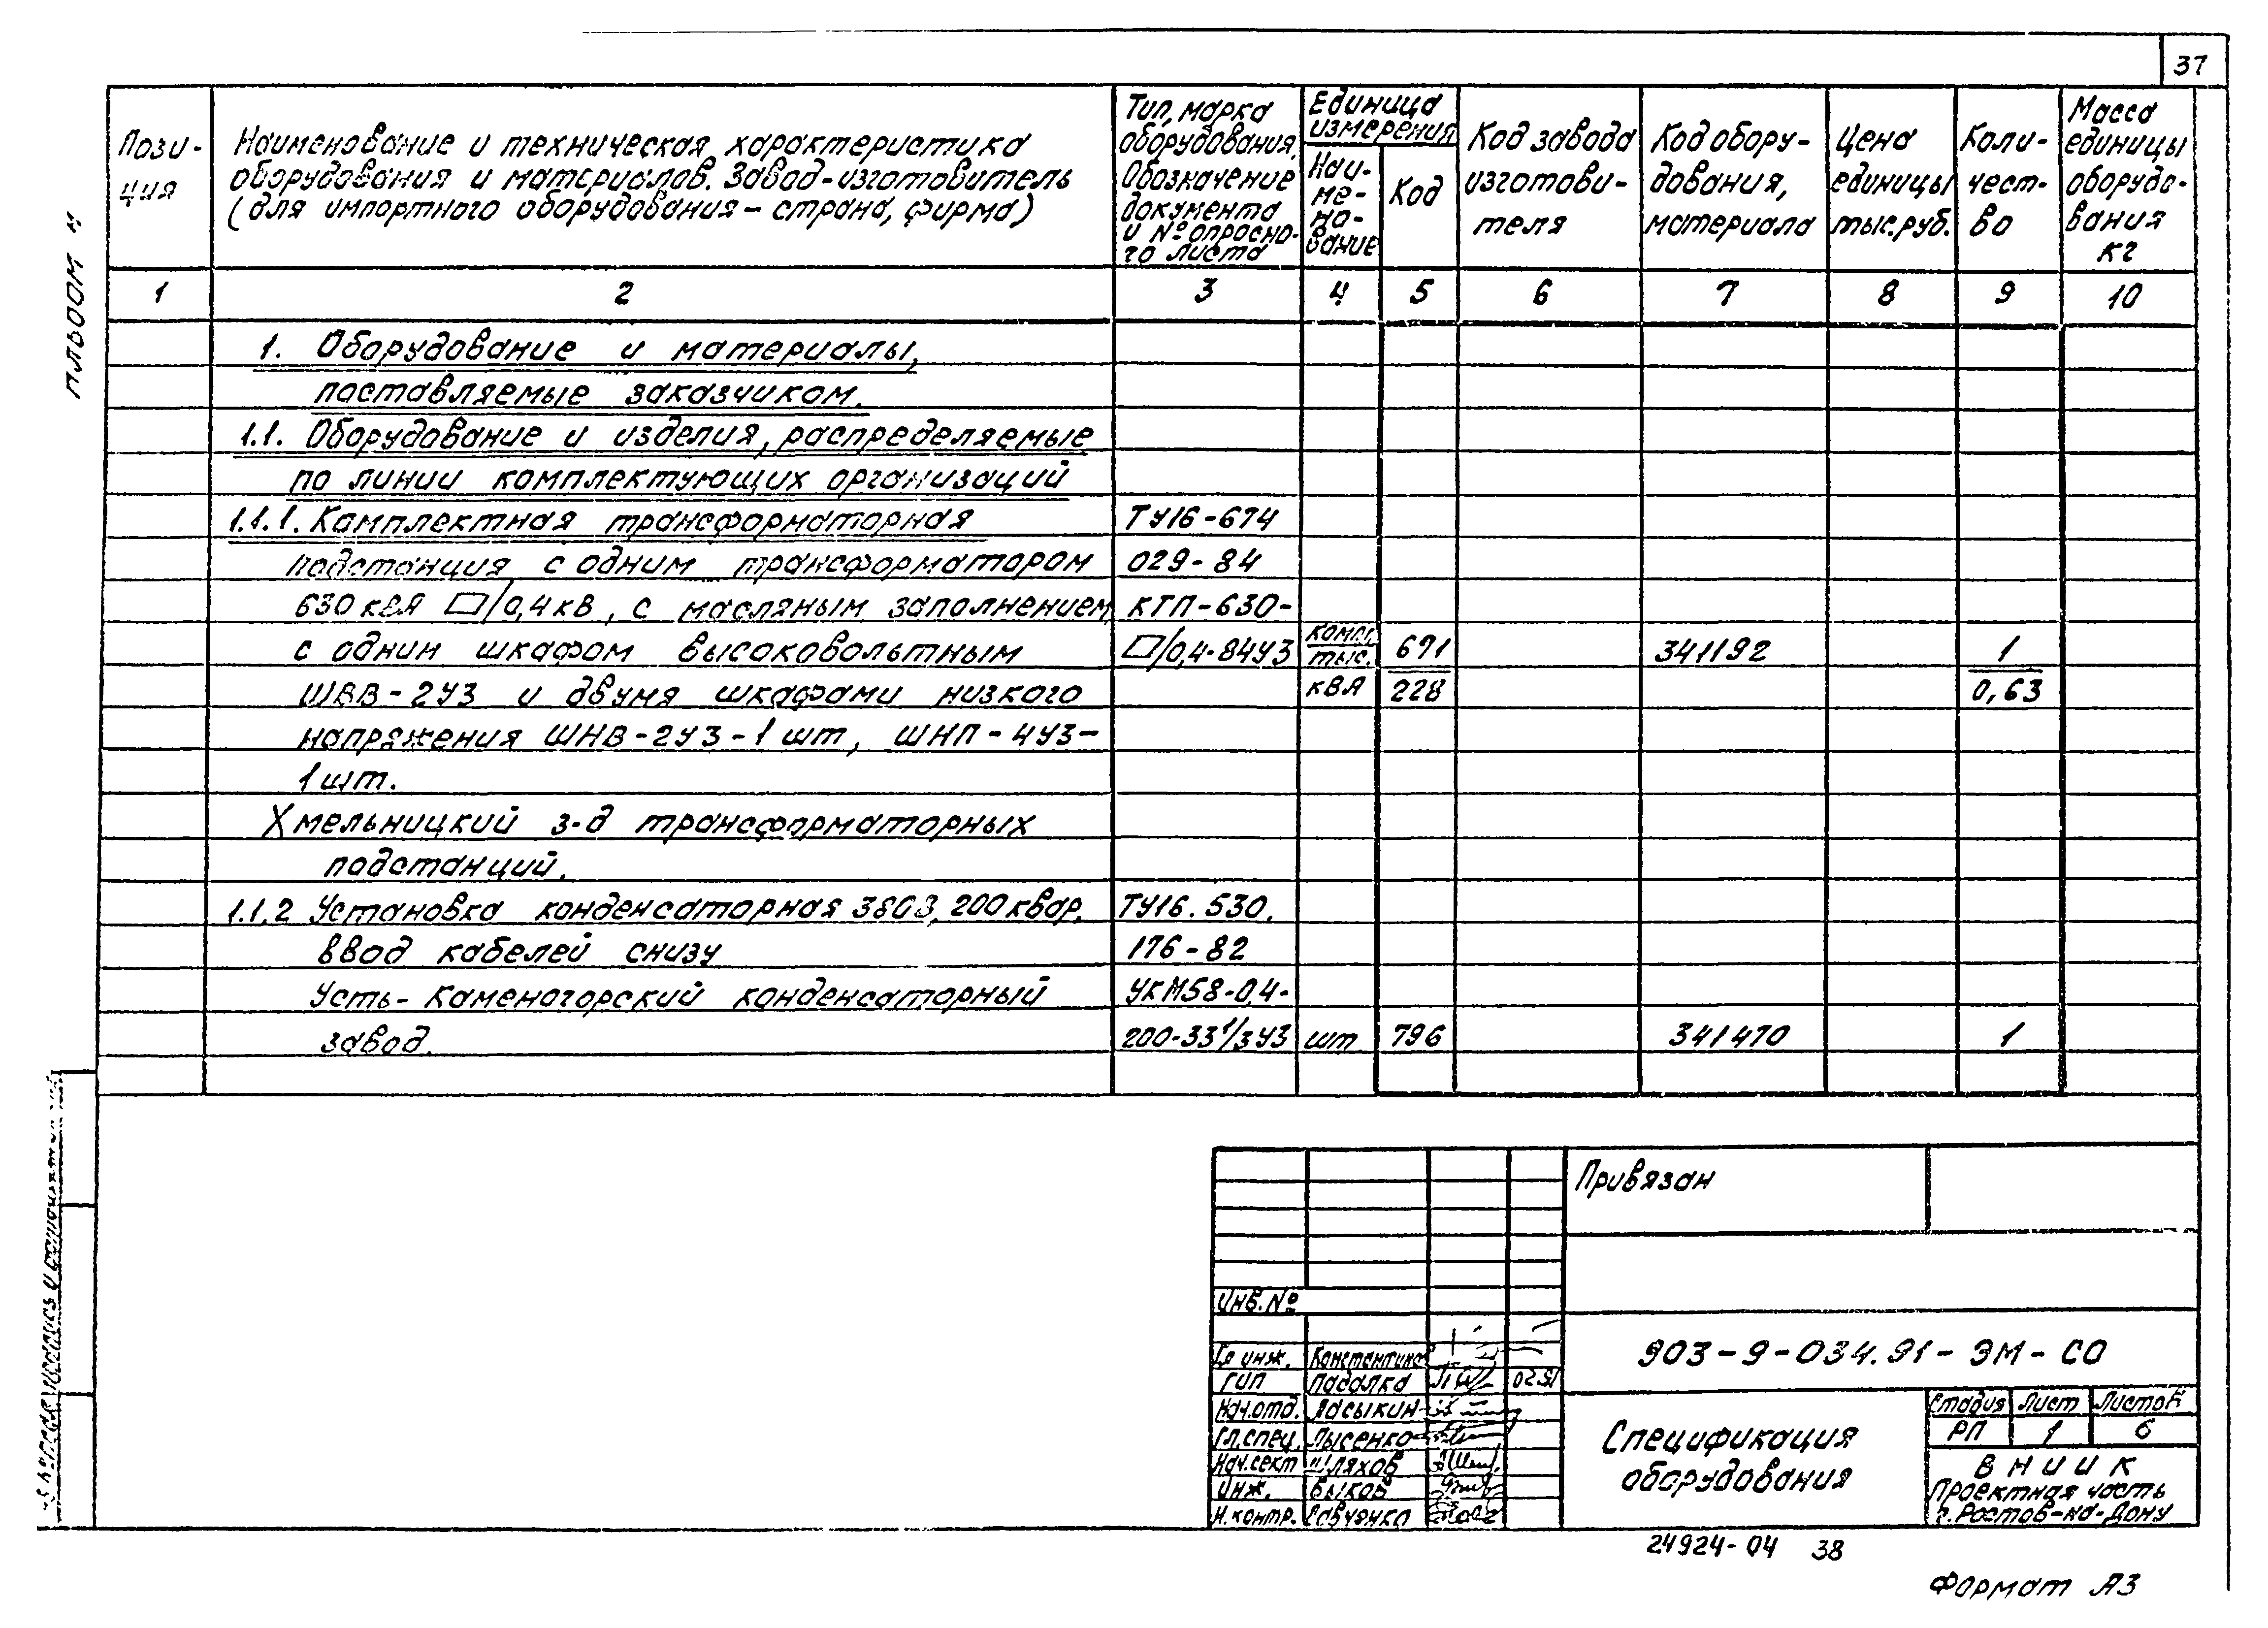 37
Альбом 4
Пози-
ция
Наименование и техническая характеристика
оборудования и материалов. Завод-изготовитель
(для импортного оборудования – страна, фирма)
Тип, марка
оборудования,
Обозначение
документа
и № опросно-
го листа
Единица
измерения
Наи-
ме-
но-
вание
Код
Код завода
изготови-
теля
Код обору-
дования,
материала
Цена
единицы
тыс.руб.
Коли-
чест-
во
Масса
единицы
оборудо-
вания
кг
1 2 3 4 5 6 7 8 9 10
1. Оборудование и материалы,
поставляемые заказчиком.
1.1. Оборудование и изделия, распределяемые
по линии комплектующих организаций
1.1.1. Комплектная трансформаторная ТУ16-674
подстанция с одним трансформатором 029-84
630 кВА □/0,4 кВ, с масляным заполнением, КТП-630-
с однин шкафом высоковольтным □/0,4-84У3 компл. тыс. 671 341192 1
ШВВ-2У3 и двумя шкафами низкого кВА 228 0,63
напряжения ШНВ-2У3-1 шт, ШНП-4У3-
1 шт.
Хмельницкий з-д трансформаторных
подстанций.
1.1.2 Установка конденсаторная 380В, 200 квар, ТУ16.530.
ввод кабелей снизу 176-82
Усть-Каменогорский конденсаторный УКМ58-0,4-
завод. 200-33 1/3 У3 шт 796 341470 1
Привязан
Инв. №
903-9-034.91-ЭМ-СО
Гл инж. Константинов
ГИП Падалка 02.91
Нач.отд. Ласыкин
Гл.спец. Лысенко
Нач.сект Шляхов
Инж. Быков
Н.контр. Савченко
Спецификация
оборудования
Стадия Лист Листов
РП 1 6
ВНИИК
Проектная часть
г.Ростов-на-Дону
24924-04 38
Формат А3